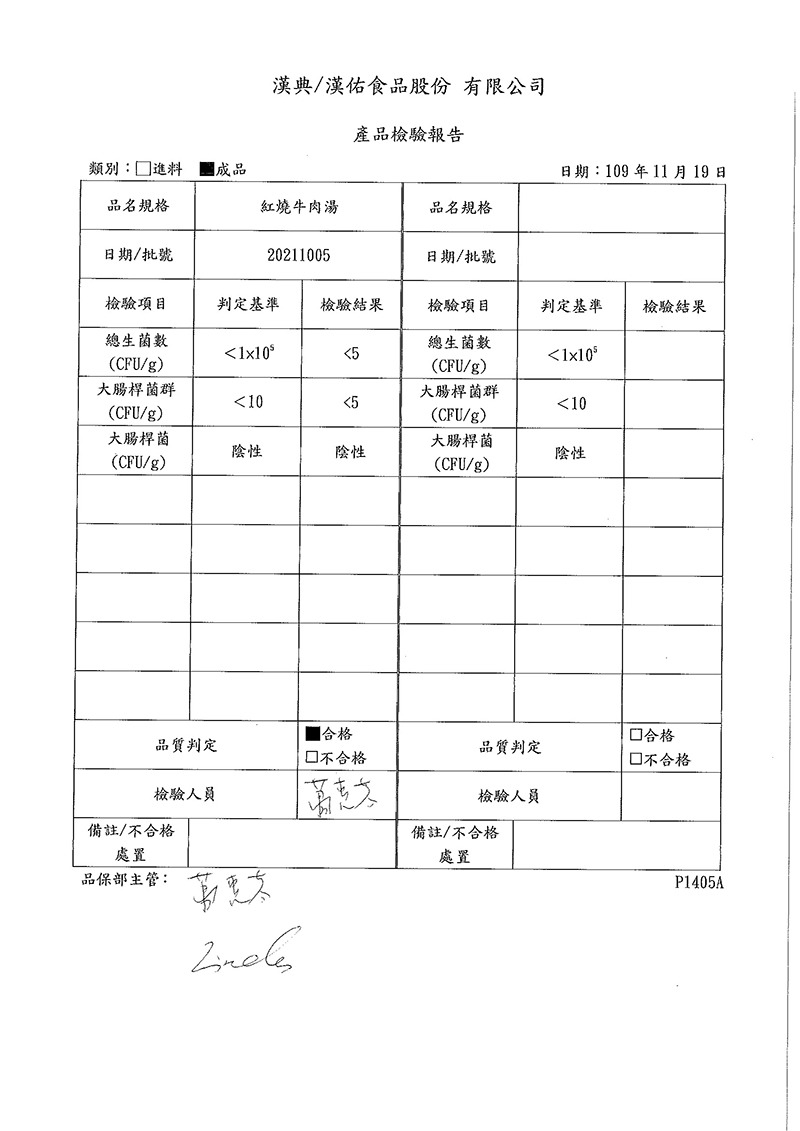 漢典/漢佑食品股份 有限公司
產品檢驗報告
類別：□進料 ■成品
日期：109 年 11 月 19 日
品名規格 紅燒牛肉湯 品名規格
日期/批號 20211005 日期/批號
檢驗項目 判定基準 檢驗結果 檢驗項目 判定基準 檢驗結果
總生菌數 (CFU/g) <1x10⁵ <5 總生菌數 (CFU/g) <1x10⁵
大腸桿菌群 (CFU/g) <10 <5 大腸桿菌群 (CFU/g) <10
大腸桿菌 (CFU/g) 陰性 陰性 大腸桿菌 (CFU/g) 陰性
品質判定 ■合格 □不合格 品質判定 □合格 □不合格
檢驗人員 檢驗人員
備註/不合格處置 備註/不合格處置
品保部主管：
P1405A